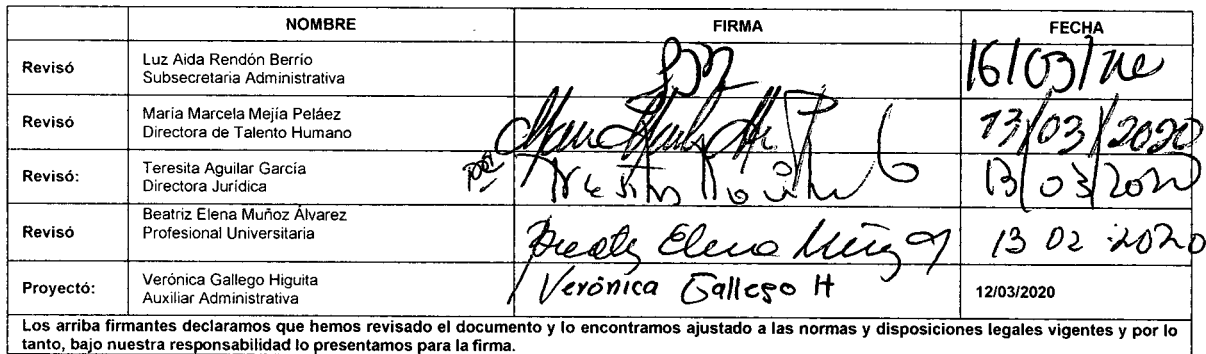 NOMBRE FIRMA FECHA
Revisó Luz Aida Rendón Berrio
Subsecretaria Administrativa
16/03/
Revisó María Marcela Mejía Peláez
Directora de Talento Humano
13/03/2020
Revisó: Teresita Aguilar García
Directora Jurídica
13/03/2020
Revisó Beatriz Elena Muñoz Álvarez
Profesional Universitaria
Elena 13 02 2020
Proyectó: Verónica Gallego Higuita
Auxiliar Administrativa
Verónica Gallego H 12/03/2020
Los arriba firmantes declaramos que hemos revisado el documento y lo encontramos ajustado a las normas y disposiciones legales vigentes y por lo
tanto, bajo nuestra responsabilidad lo presentamos para la firma.